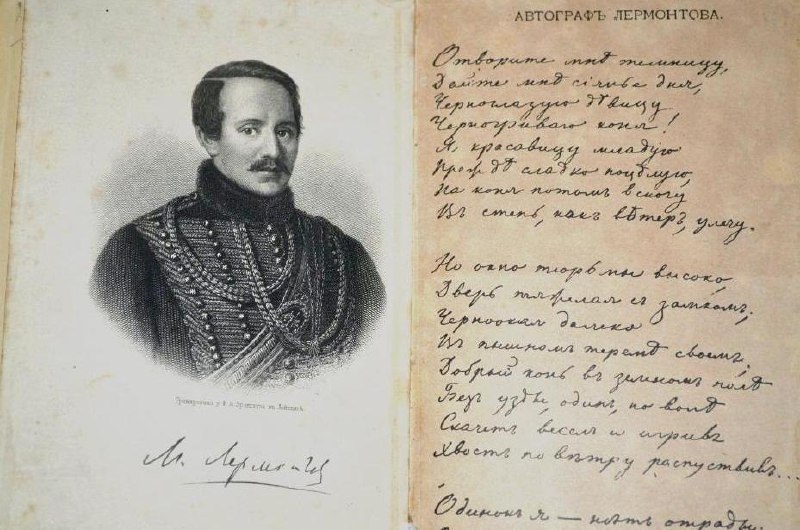 Гравировано у Ф. А. Брокгауза въ Лейпцигѣ.
М. Лермонтов
АВТОГРАФЪ ЛЕРМОНТОВА.
Отворите мнѣ темницу,
Дайте мнѣ сіянье дня,
Черноглазую дѣвицу
Черногриваго коня!
Я красавицу младую
Прежде сладко поцѣлую,
На коня потомъ вскочу
Въ степь, какъ вѣтеръ, улечу.
Но окно тюрьмы высоко,
Дверь тяжелая съ замкомъ;
Черноокая далеко
Въ пышномъ теремѣ своемъ;
Добрый конь въ зеленомъ полѣ
Безъ узды, одинъ, по волѣ
Скачетъ веселъ и игривъ
Хвостъ по вѣтру распустивъ...
Одинокъ я — нѣтъ отрады: